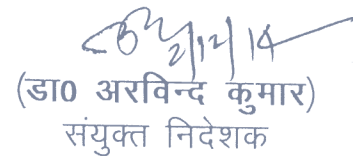 2/12/14
(डा0 अरविन्द कुमार)
संयुक्त निदेशक